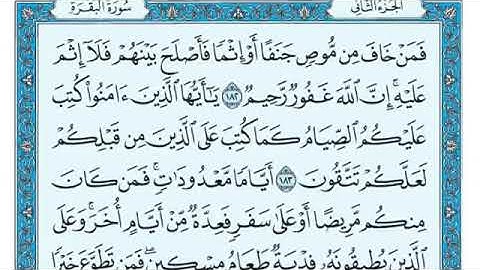 الجزء الثاني
سورة البقرة
فَمَنْ خَافَ مِن مُّوصٍ جَنَفًا أَوْ إِثْمًا فَأَصْلَحَ بَيْنَهُمْ فَلَآ إِثْمَ
عَلَيْهِ ۚ إِنَّ ٱللَّهَ غَفُورٌ رَّحِيمٌ ١٨٢ يَٰٓأَيُّهَا ٱلَّذِينَ ءَامَنُوا۟ كُتِبَ
عَلَيْكُمُ ٱلصِّيَامُ كَمَا كُتِبَ عَلَى ٱلَّذِينَ مِن قَبْلِكُمْ
لَعَلَّكُمْ تَتَّقُونَ ١٨٣ أَيَّامًا مَّعْدُودَٰتٍ ۚ فَمَن كَانَ
مِنكُم مَّرِيضًا أَوْ عَلَىٰ سَفَرٍ فَعِدَّةٌ مِّنْ أَيَّامٍ أُخَرَ ۚ وَعَلَى
ٱلَّذِينَ يُطِيقُونَهُۥ فِدْيَةٌ طَعَامُ مِسْكِينٍ ۖ فَمَن تَطَوَّعَ خَيْرًا